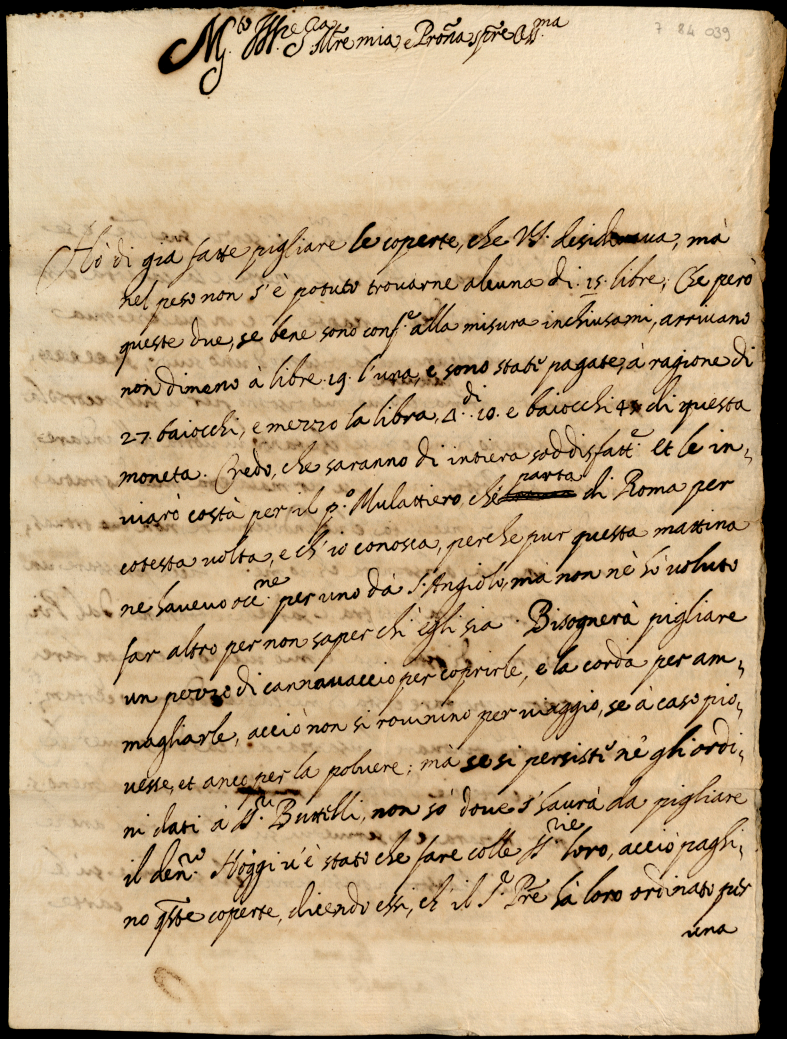 7 84 039
M.to Ill.re Sig.ra M̃re mia, e Proña sp̃re Oss.ma
Hò di già fatte pigliare le coperte, che VS. desideraua, mà
nel peso non s'è potuto trouarne alcuna di .15. libre; Che però
queste due, se bene sono conf.e alla misura inchiusami, arriuano
nondimeno à libre .19. l'una, e sono state pagate à ragione di
27. baiocchi, e mezzo la libra, Δ.di 10. e baiocchi di questa
moneta. Credo, che saranno di intiera soddisfatt.e et le in-
uiarò costà per il p.o Mulattiero, che parta di Roma per
cotesta uolta, e ch'io conosca, perche pur questa mattina
ne haueuo occ.ne per uno dà S. Angiolo, mà non n'è hò uoluto
far altro per non saper chi egli sia. Bisognerà pigliare
un pezzo di cannauaccio per coprirle, e la corda per am-
magliarle, acciò non si rouinino per uiaggio, se à caso pio-
uesse, et anco per la poluere; mà se si persiste nè gli ordi-
ni dati à SS.ri Burilli, non sò doue s'haurà da pigliare
il den.ro Hoggi u'è stato che fare colle SS.rie loro, acciò paghi-
no q̃ste coperte, dicendo essi, ch'il S.r P̃re hà loro ordinato per
una